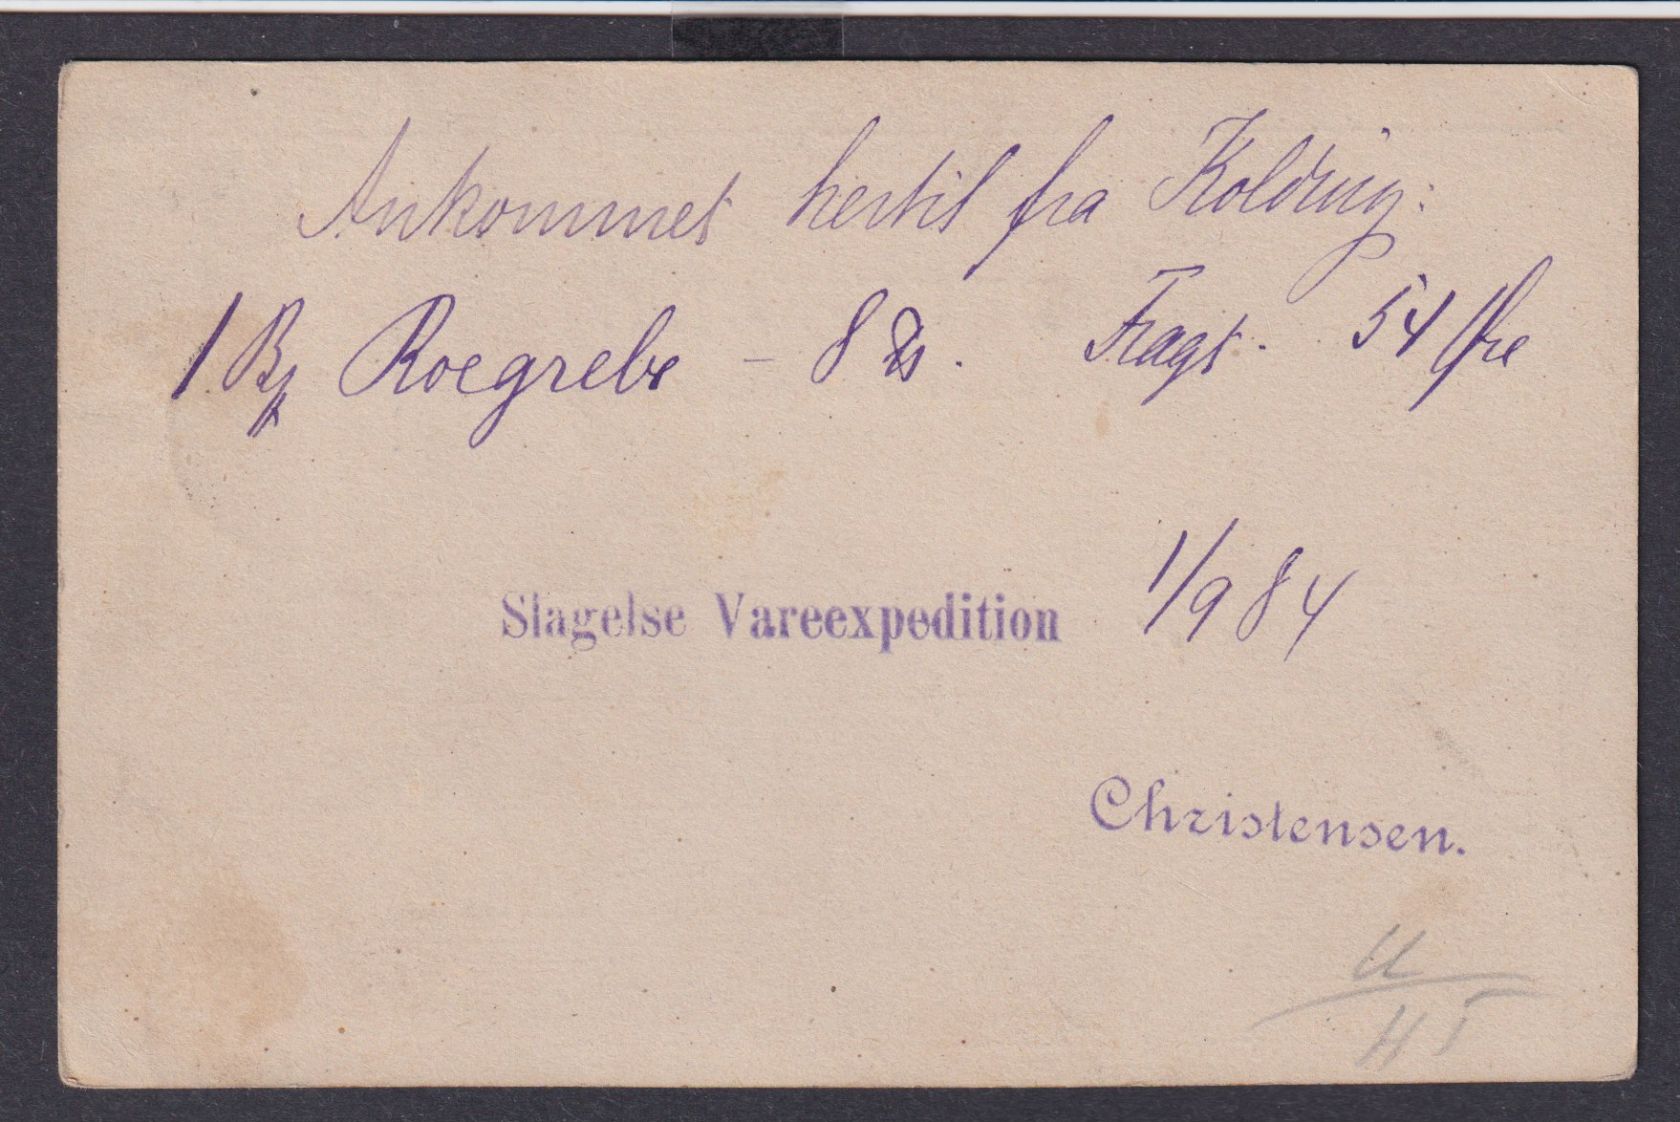 Ankommet hertil fra Kolding:
1 Roegrebe – 8 ℔. Fragt. 54 Øre
Slagelse Vareexpedition 1/9 84
Christensen.